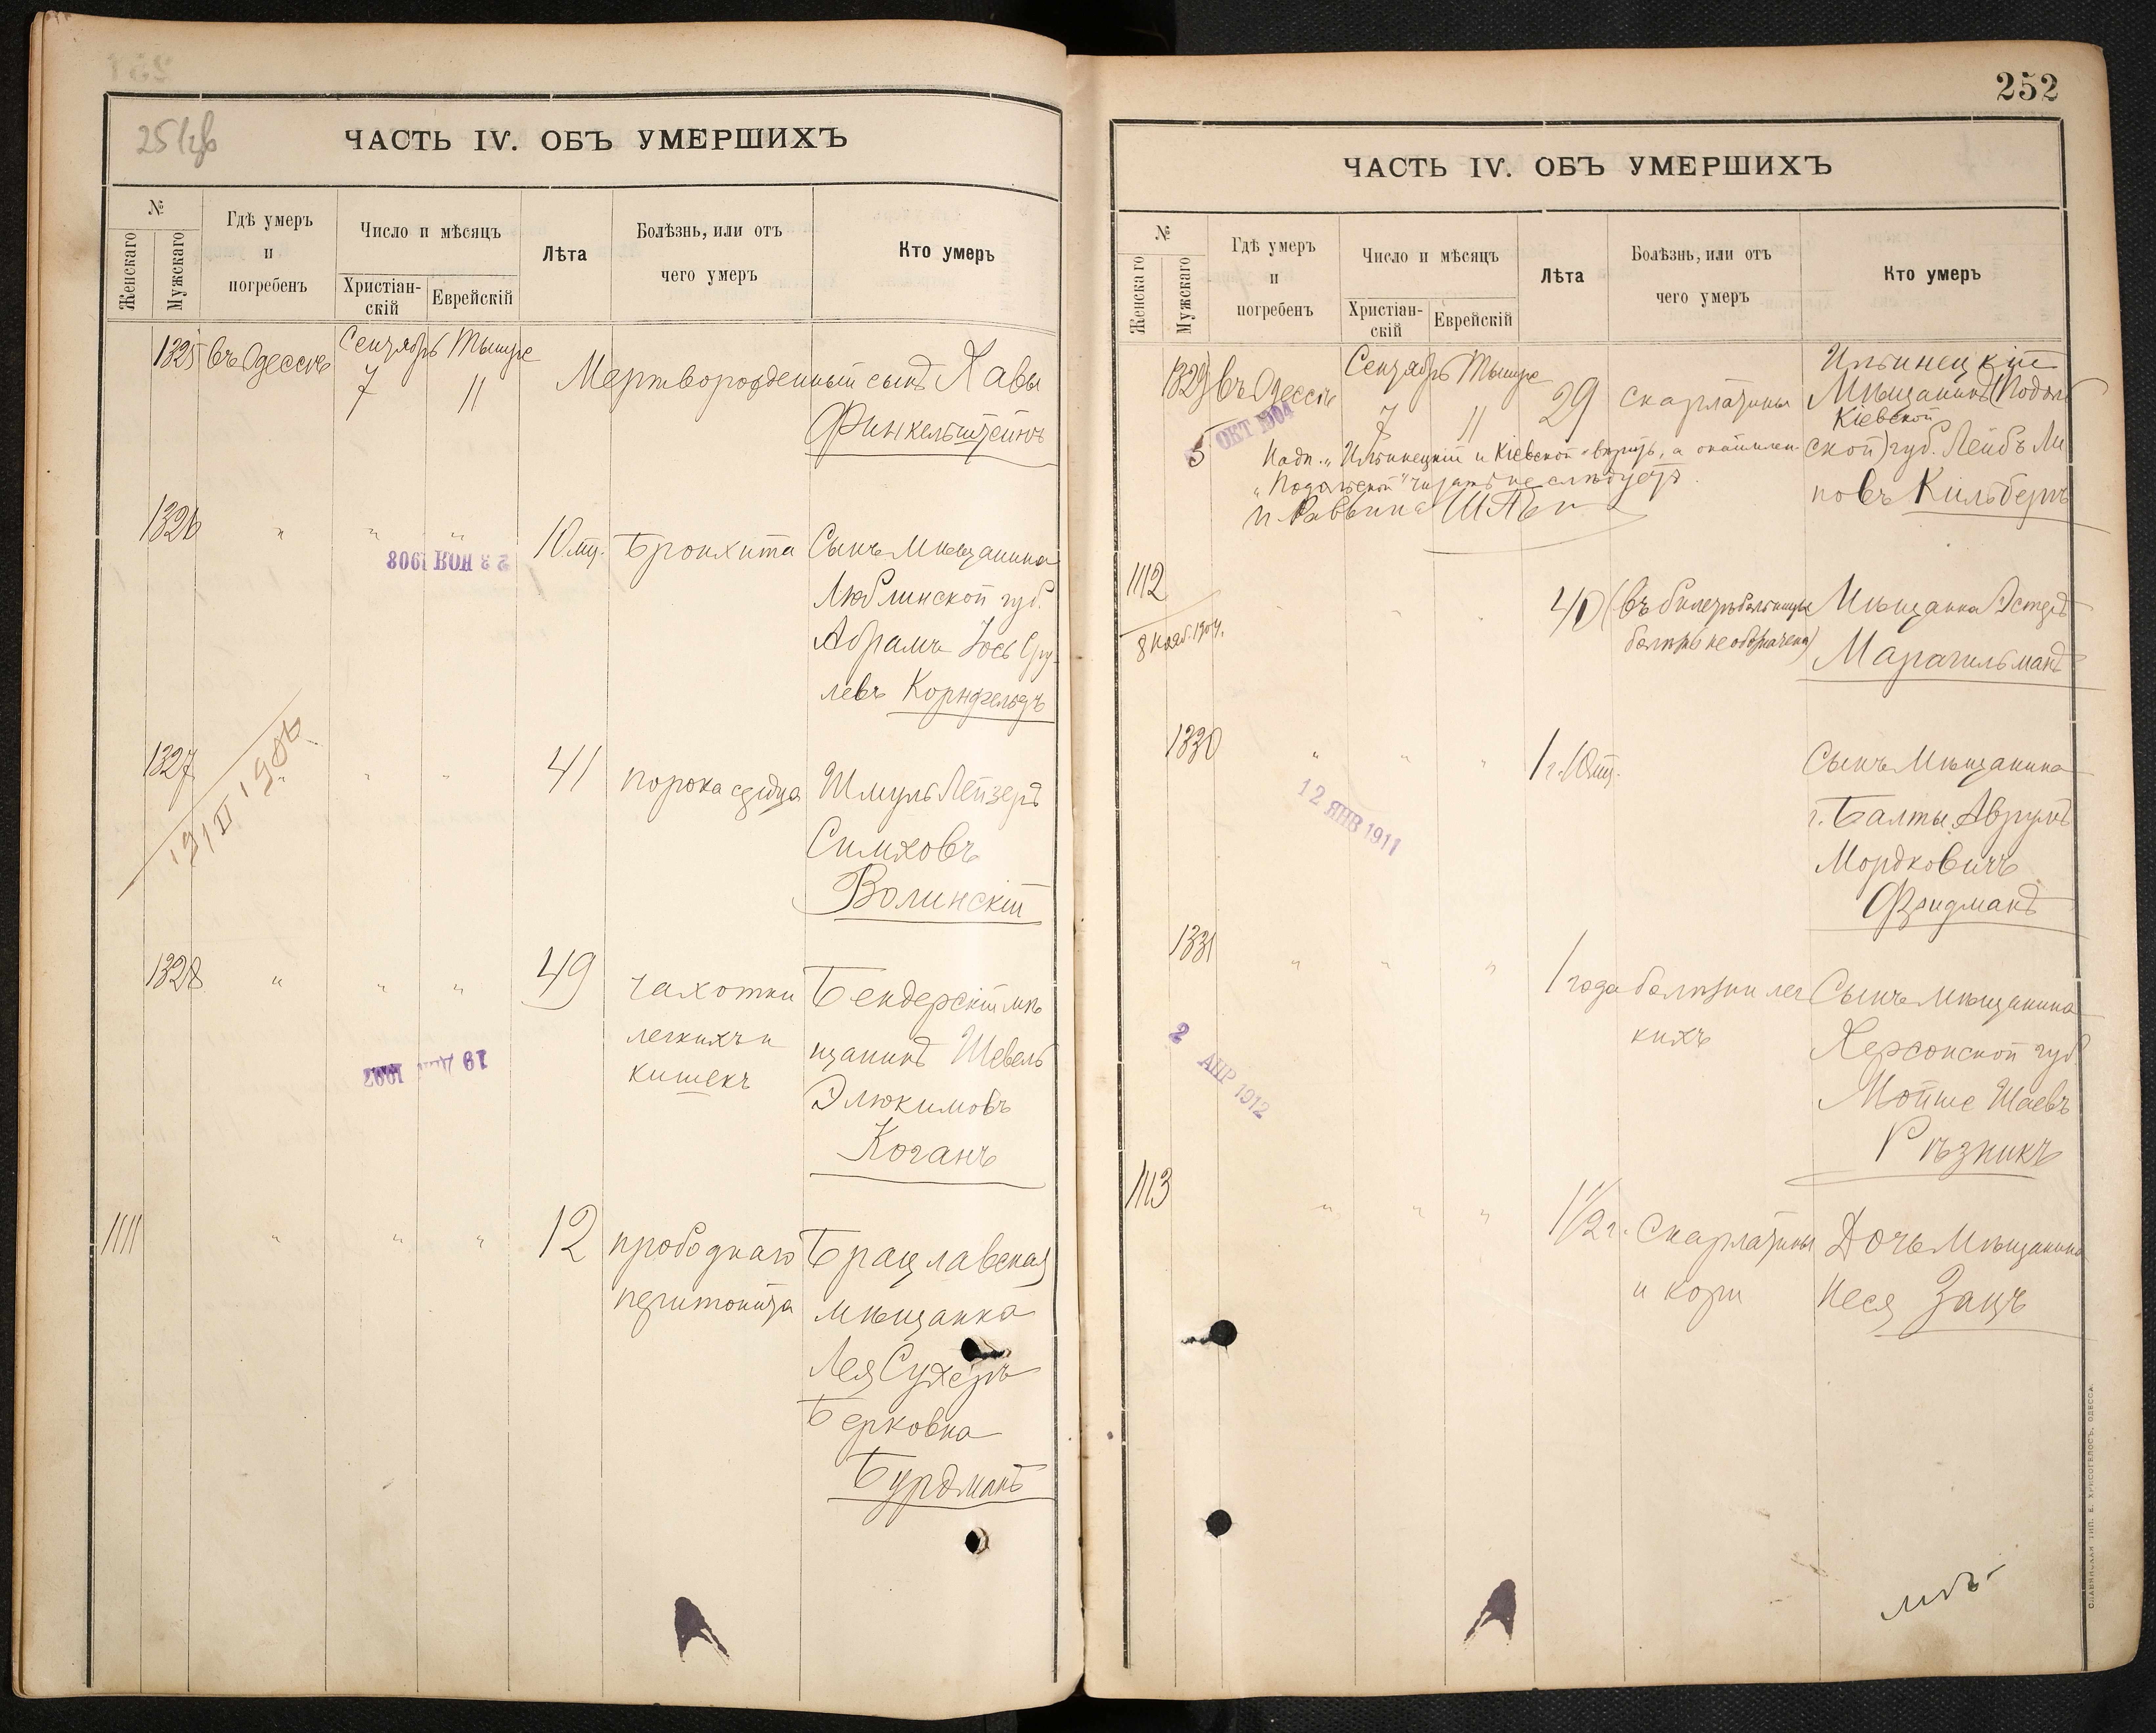 ЧАСТЬ IV. ОБЪ УМЕРШИХЪ
№
Женскаго
Мужскаго
Гдѣ умеръ
и
погребенъ
Число и мѣсяцъ
Христіан-
скій
Еврейскій
Лѣта
Болѣзнь, или отъ
чего умеръ
Кто умеръ
1325 въ Одессѣ Сентябрь 7 Тишре 11 Мертворожденный сынъ Хавы
Финкельштейнъ
1326 " " " 10 мц. Бронхита Сынъ Мѣщанина
23 НОЯ 1908
Люблинской губ.
Абрамъ Іось Сру-
левъ Корнфельдъ
1327 " " " 41 порока сердца Шмуль Лейзеръ
Симховъ
Волинскій
1328 " " " 49 чахотки Бендерскій мѣ
легкихъ и щанинъ Шевель
кишекъ Элюкимовъ
Коганъ
1111 " " " 12 прободнаго Брацлавская
перитонита мѣщанка
Лея Сухеръ
Берковна
Бурдманъ
252
ЧАСТЬ IV. ОБЪ УМЕРШИХЪ
№
Женскаго
Мужскаго
Гдѣ умеръ
и
погребенъ
Число и мѣсяцъ
Христіан-
скій
Еврейскій
Лѣта
Болѣзнь, или отъ
чего умеръ
Кто умеръ
1329 въ Одессѣ Сентябрь 7 Тишре 11 29 скарлатины Ильинецкій
Мѣщанинъ (Подоль
Кіевской
5 ОКТ 1904
Надп. „Ильинецкій и Кіевской" вѣрить, а
ской) губ. Лейбъ Ли
„Подольской" читать не слѣдуетъ.
повъ Кильберъ
И. Раввина
1112 " " 40 (въ билетѣ больницы Мѣщанка Эстеръ
8 Нояб. 1904.
болѣзнь не обозначена)
Марагильманъ
1330 " " " 1 г. 10 мц. Сынъ Мѣщанина
12 ЯНВ 1911
г. Балты Аврумъ
Мордковичъ
Фридманъ
1331 " " " 1 года болѣзни лег Сынъ мѣщанина
кихъ Херсонской губ.
2 АПР 1912
Мойше Шаевъ
Рѣзникъ
1113 " " " 1 1/2 г. Скарлатины Дочь Мѣщанина
и кори Неся Зацъ
СЛАВЯНСКАЯ ТИП. Е. ХРИСОГЕЛОСЪ, ОДЕССА.